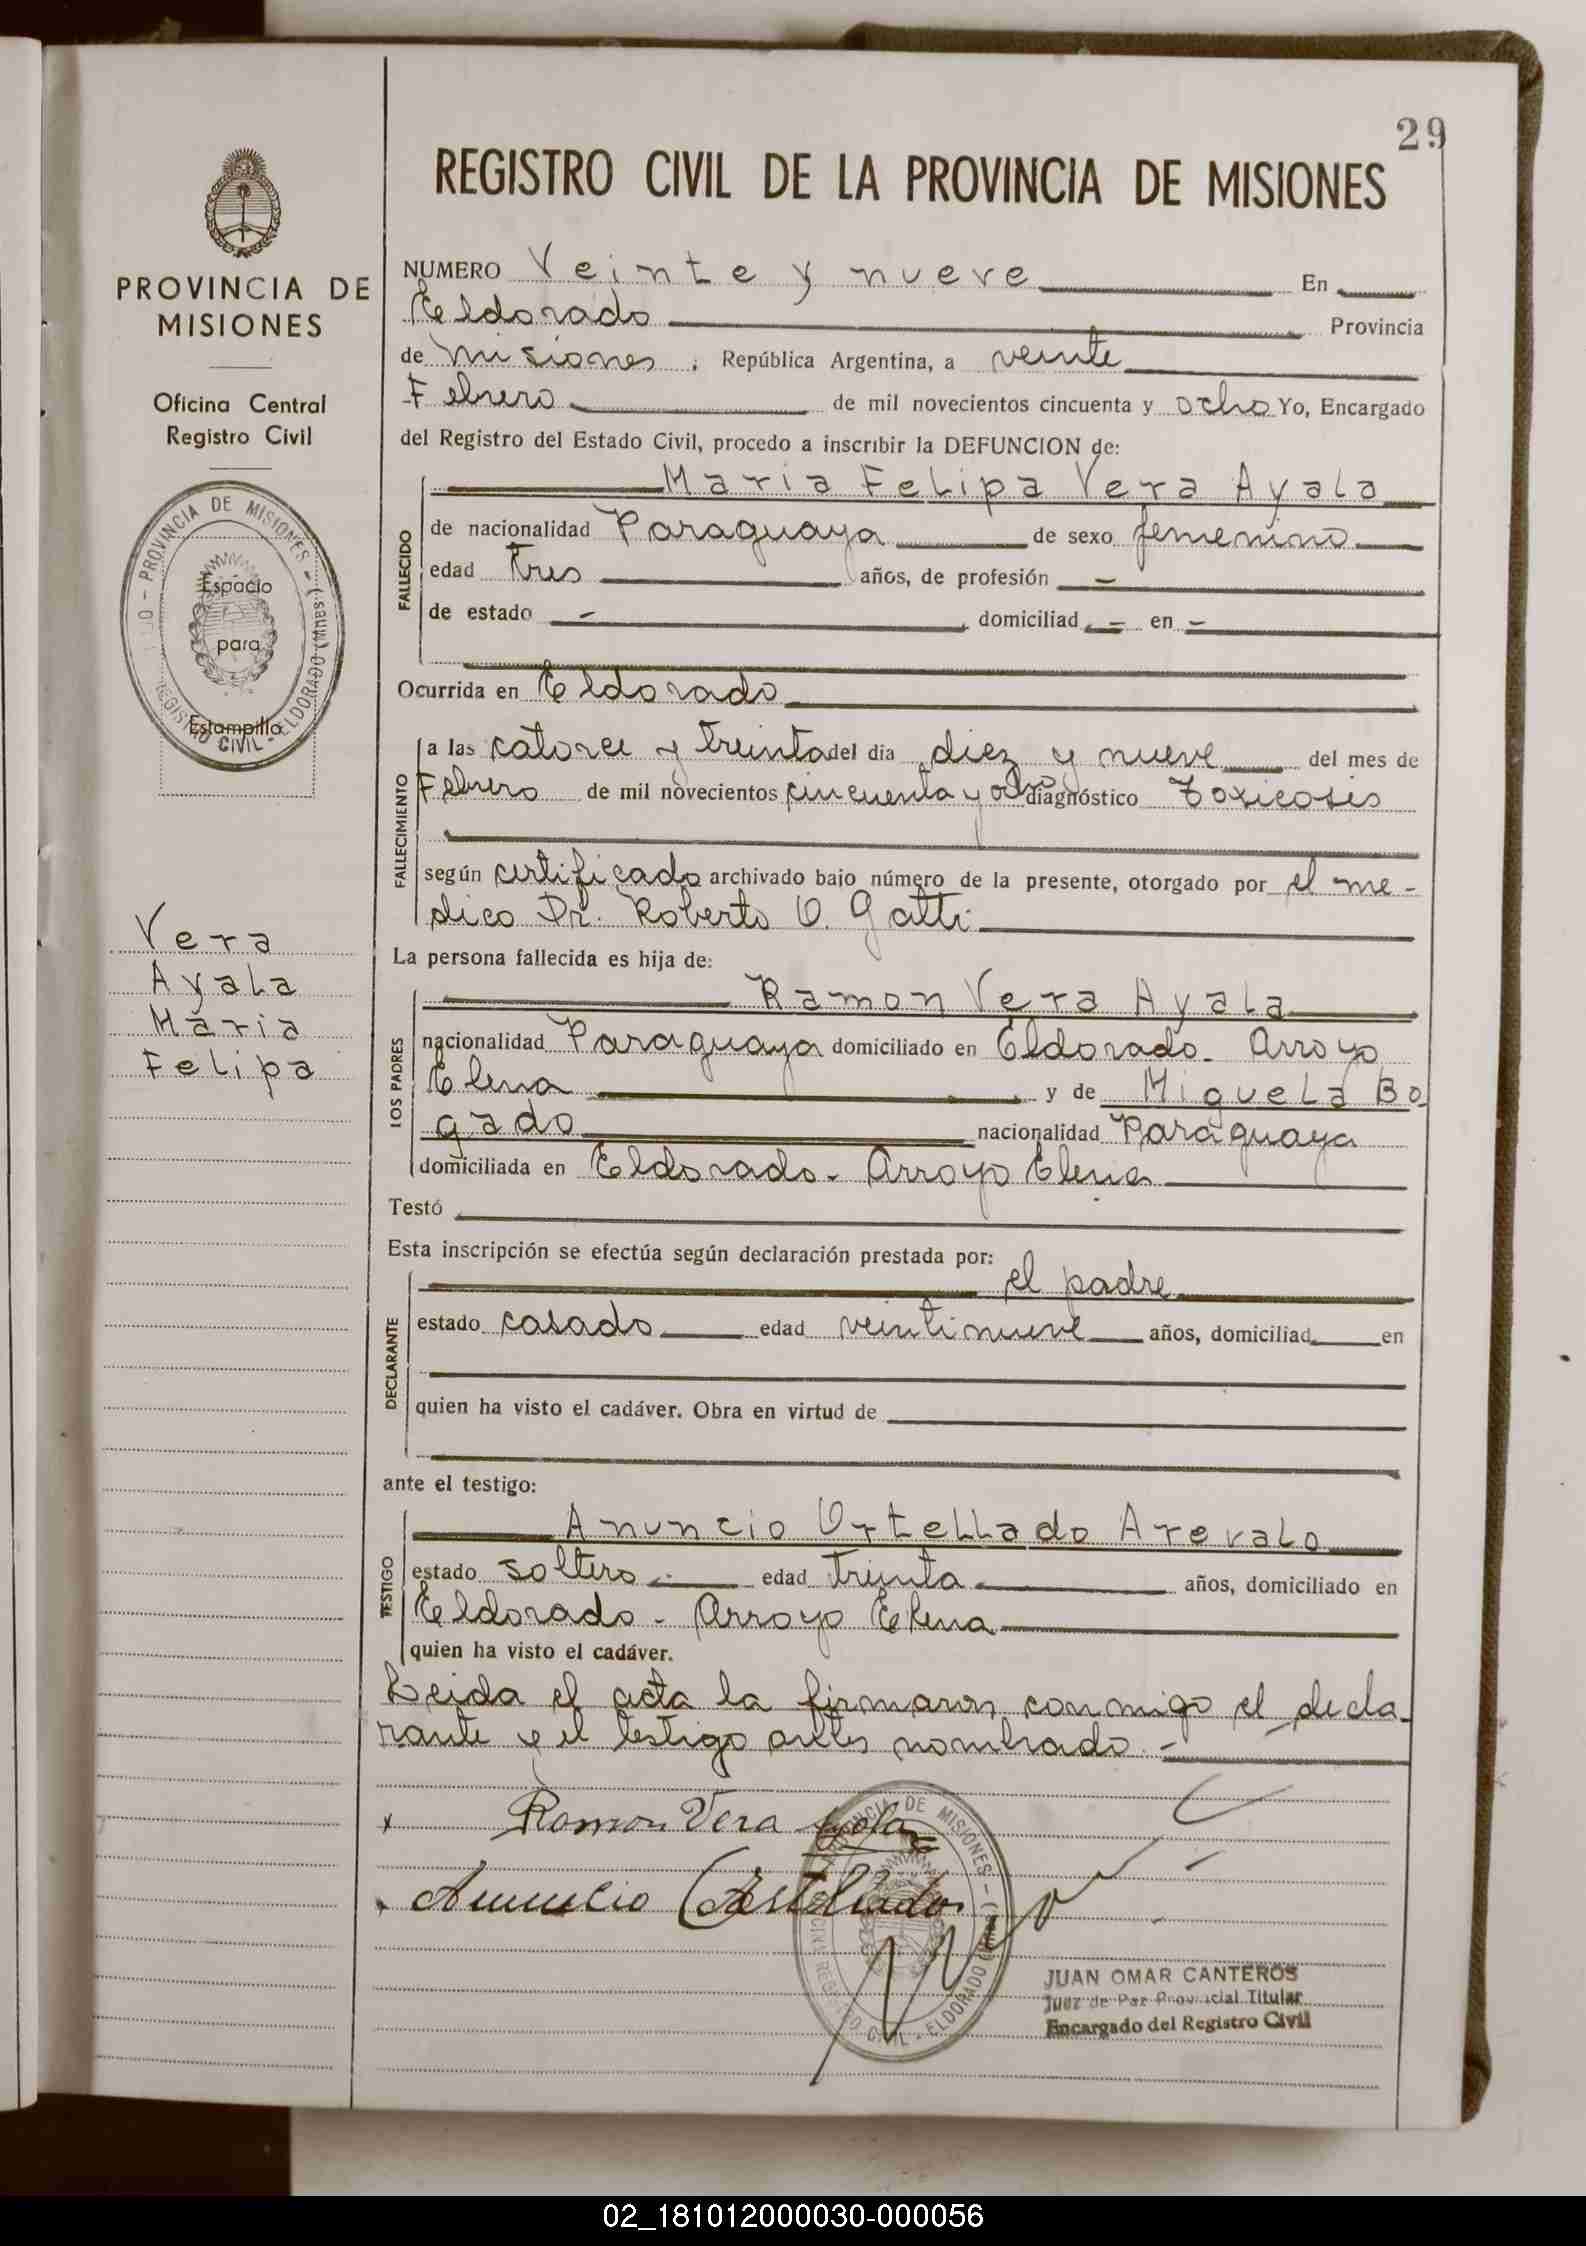 29
REGISTRO CIVIL DE LA PROVINCIA DE MISIONES
PROVINCIA DE
MISIONES
Oficina Central
Registro Civil
PROVINCIA DE MISIONES - REGISTRO CIVIL - ELDORADO (Mnes.)
Espacio
para
Estampilla
Vera
Ayala
Maria
Felipa
NUMERO Veinte y nueve En
Eldorado Provincia
de Misiones, República Argentina, a veinte
Febrero de mil novecientos cincuenta y ocho Yo, Encargado
del Registro del Estado Civil, procedo a inscribir la DEFUNCION de:
Maria Felipa Vera Ayala
FALLECIDO
de nacionalidad Paraguaya de sexo femenino
edad tres años, de profesión -
de estado - , domiciliad - en -
Ocurrida en Eldorado
FALLECIMIENTO
a las catorce y treinta del dia diez y nueve del mes de
Febrero de mil novecientos cincuenta y ocho diagnóstico Toxicosis
según certificado archivado bajo número de la presente, otorgado por el me-
dico Dr. Roberto O. Gatti.
La persona fallecida es hija de:
LOS PADRES
Ramon Vera Ayala
nacionalidad Paraguaya domiciliado en Eldorado - Arroyo
Elena y de Miguela Bo
gado nacionalidad Paraguaya
domiciliada en Eldorado - Arroyo Elena
Testó
Esta inscripción se efectúa según declaración prestada por:
el padre
DECLARANTE
estado casado edad veintinueve años, domiciliad en
quien ha visto el cadáver. Obra en virtud de
ante el testigo:
TESTIGO
Anuncio Ortellado Arevalo
estado soltero edad treinta años, domiciliado en
Eldorado - Arroyo Elena
quien ha visto el cadáver.
Leida el acta la firmaron conmigo el decla-
rante y el testigo antes nombrado.-
Ramon Vera Ayala
Anuncio Ortellado
PROVINCIA DE MISIONES - REGISTRO CIVIL - ELDORADO
JUAN OMAR CANTEROS
Juez de Paz Provincial Titular
Encargado del Registro Civil
02_181012000030-000056